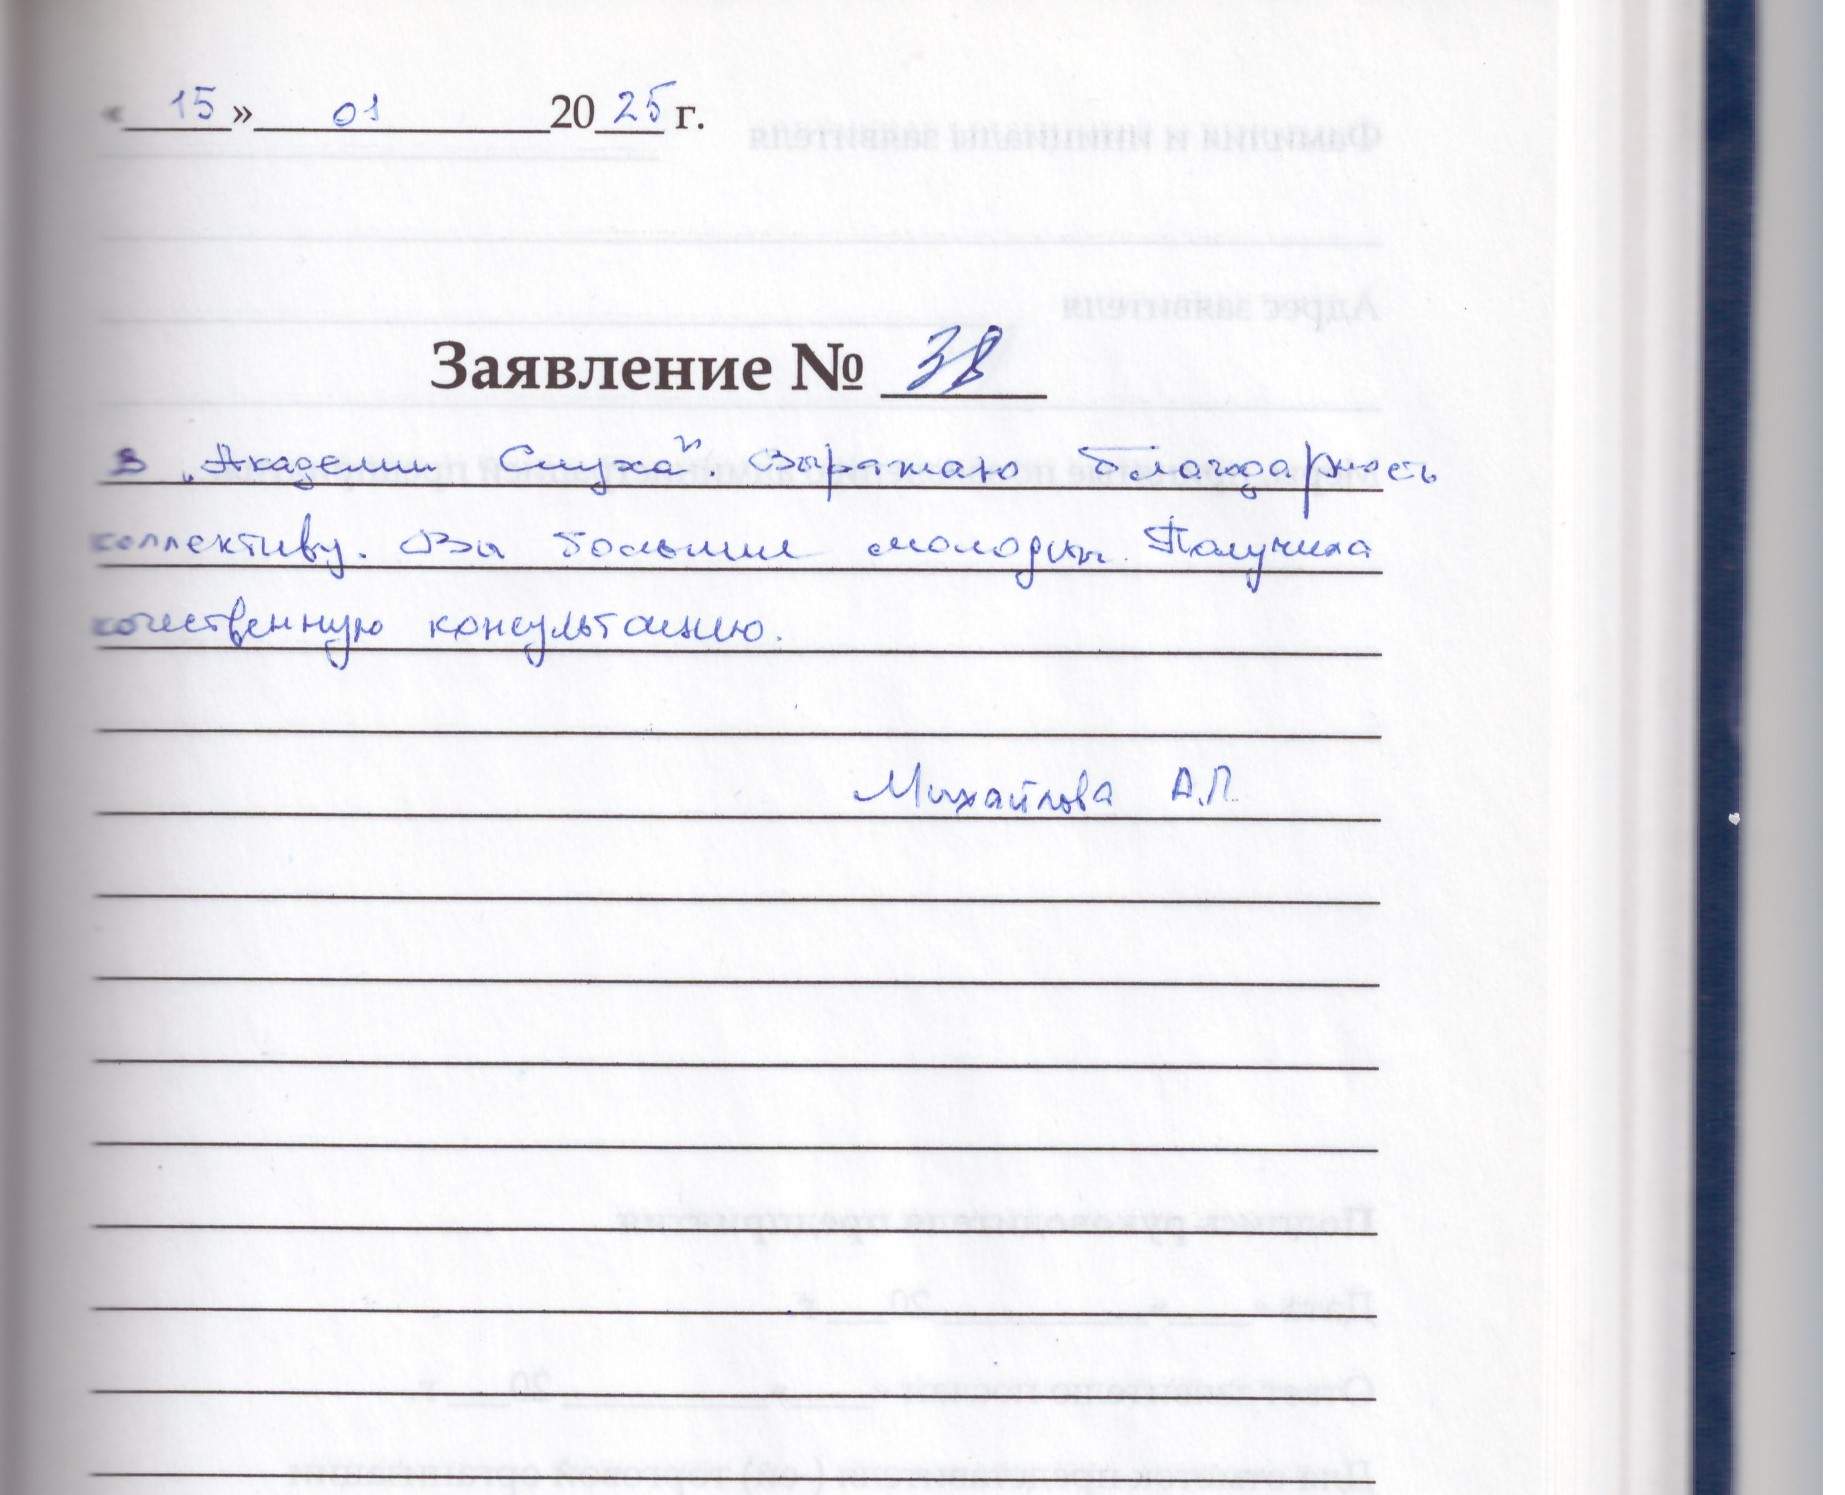 « 15 » 01 20 25 г.
Заявление № 38
В „Академии Слуха". Выражаю благодарность
коллективу. Вы большие молодцы. Получила
качественную консультацию.
Михайлова А.П.